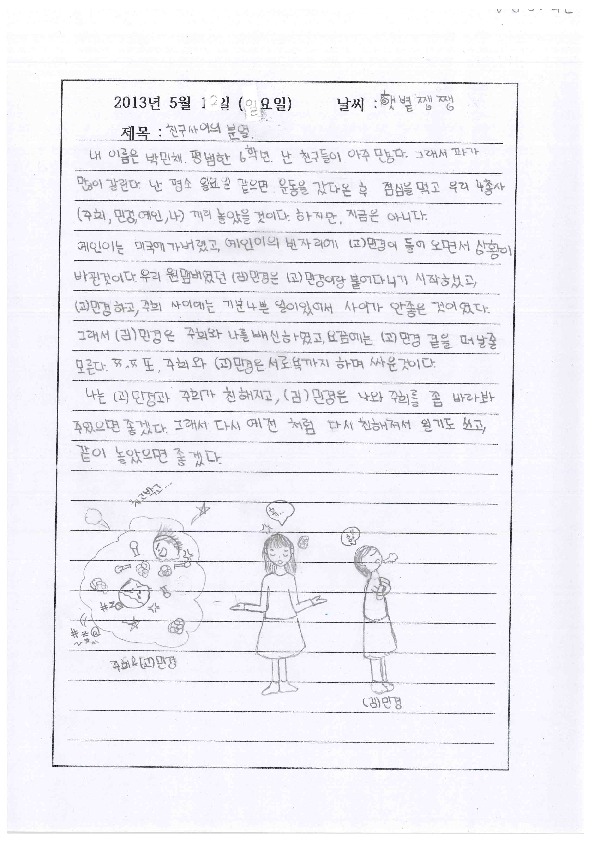 2013년 5월 12일 (일요일) 날씨 : 햇볕쨍쨍
제목 : 친구사이의 분열.
내 이름은 박민채. 평범한 6학년. 난 친구들이 아주 많다. 그래서 파가
많이 갈린다. 난 평소 일요일 같으면 운동을 갔다온 후 점심을 먹고 우리 4총사
(주희, 민경, 예인, 나) 끼리 놀았을것이다. 하지만, 지금은 아니다.
예인이는 미국에 가버렸고, 예인이의 빈자리에 (고)민경이 들어 오면서 상황이
바뀐것이다. 우리 원멤버였던 (김)민경은 (고)민경이랑 붙어다니기 시작하였고,
(고)민경하고, 주희 사이에는 기분나쁜 일이있어서 사이가 안좋은 것이였다.
그래서 (김)민경은 주희와 나를 배신하였고, 요즘에는 (고)민경 곁을 떠날줄
모른다. ㅠ.ㅠ 또, 주희와 (고)민경은 서로 욕까지 하며 싸운것이다.
나는 (고)민경과 주희가 친해지고, (김)민경은 나와 주희를 좀 바라봐
주었으면 좋겠다. 그래서 다시 예전 처럼 다시 친해져서 일기도 쓰고,
같이 놀았으면 좋겠다.
치고박고...
주희&(고)민경
(김)민경